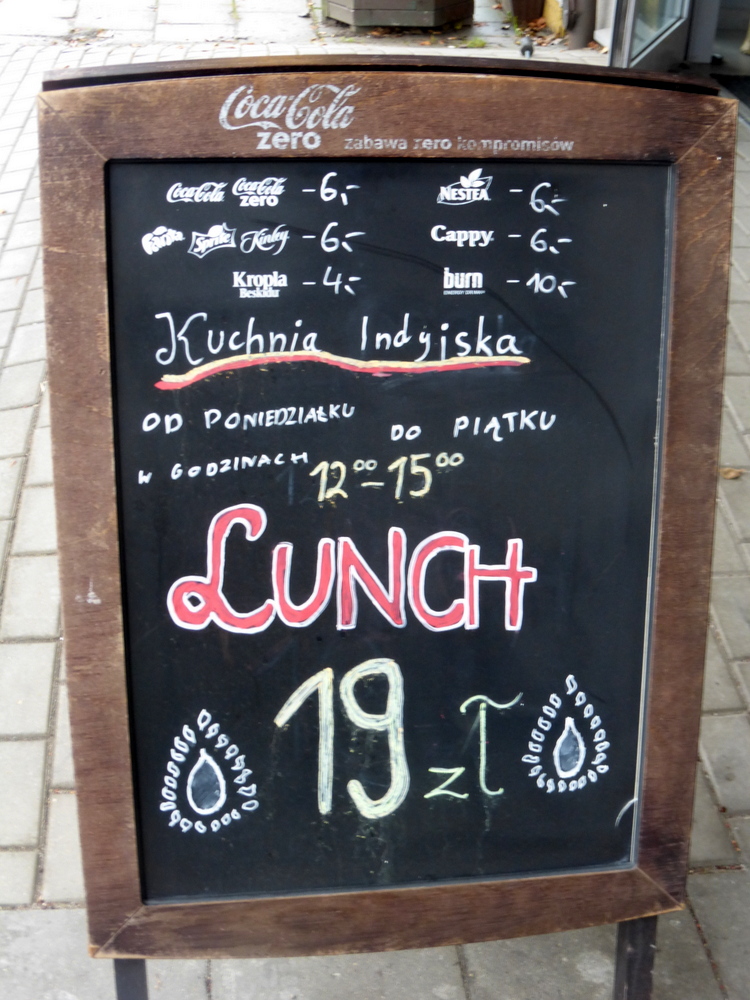 Coca-Cola
zero zabawa zero kompromisów
Coca-Cola Coca-Cola zero -6,- NESTEA -6,-
Fanta Sprite Kinley -6,- Cappy -6,-
Kropla Beskidu -4,- burn -10,-
Kuchnia Indyjska
OD PONIEDZIAŁKU DO PIĄTKU
W GODZINACH 12⁰⁰-15⁰⁰
LUNCH
19 zł